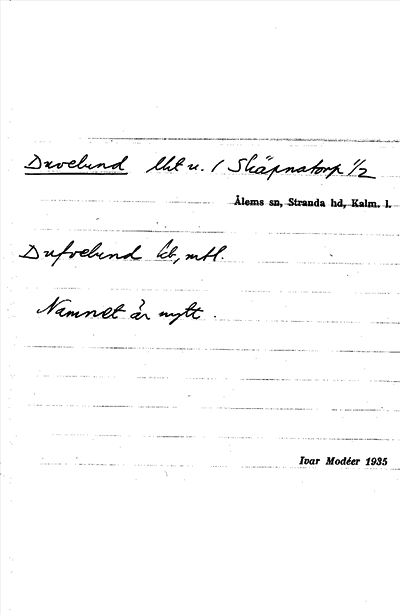 Duvelund lht u. 1 Skäpnatorp 1/2
Ålems sn, Stranda hd, Kalm. l.
Dufvelund kb, mtl.
Namnet är nytt.
Ivar Modéer 1935